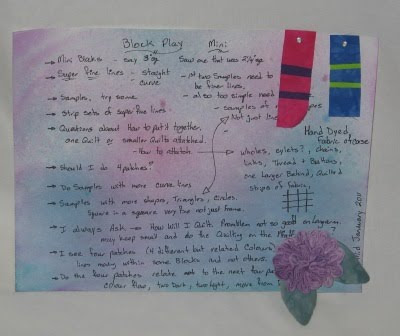 Block Play Mini
→ Mini Blocks - say 3"sq. Saw one that was 2½"sq
→ Super fine lines - straight - 1st two Samples need to
curve be finer lines,
→ Samples, try some. - also too simple need
→ Strip sets of super fine lines. - samples of
Not just
→ Questions about How to put it together,
one Quilt or smaller Quilts attatched.
- How to attatch. → wholes, eylets?, chains,
links, Thread + Buttons,
one Larger Behind, Quilted
strips of fabric.
Hand Dyed,
Fabric of case
→ Should I do 4 patches?
→ Do Samples with more curve lines
→ Samples with more shapes, Triangles, circles.
Square in a square very fine not just frame.
→ I always Ask → How Will I Quilt. Problem not so good on Longarm.
may keep small and do the Quilting in the
→ I see four patches (4 different but related Colours)
lines moving within some Blocks and not others.
→ Do the four patches relate to the next four
colour flow, two Dark, two light, move from
January 2011